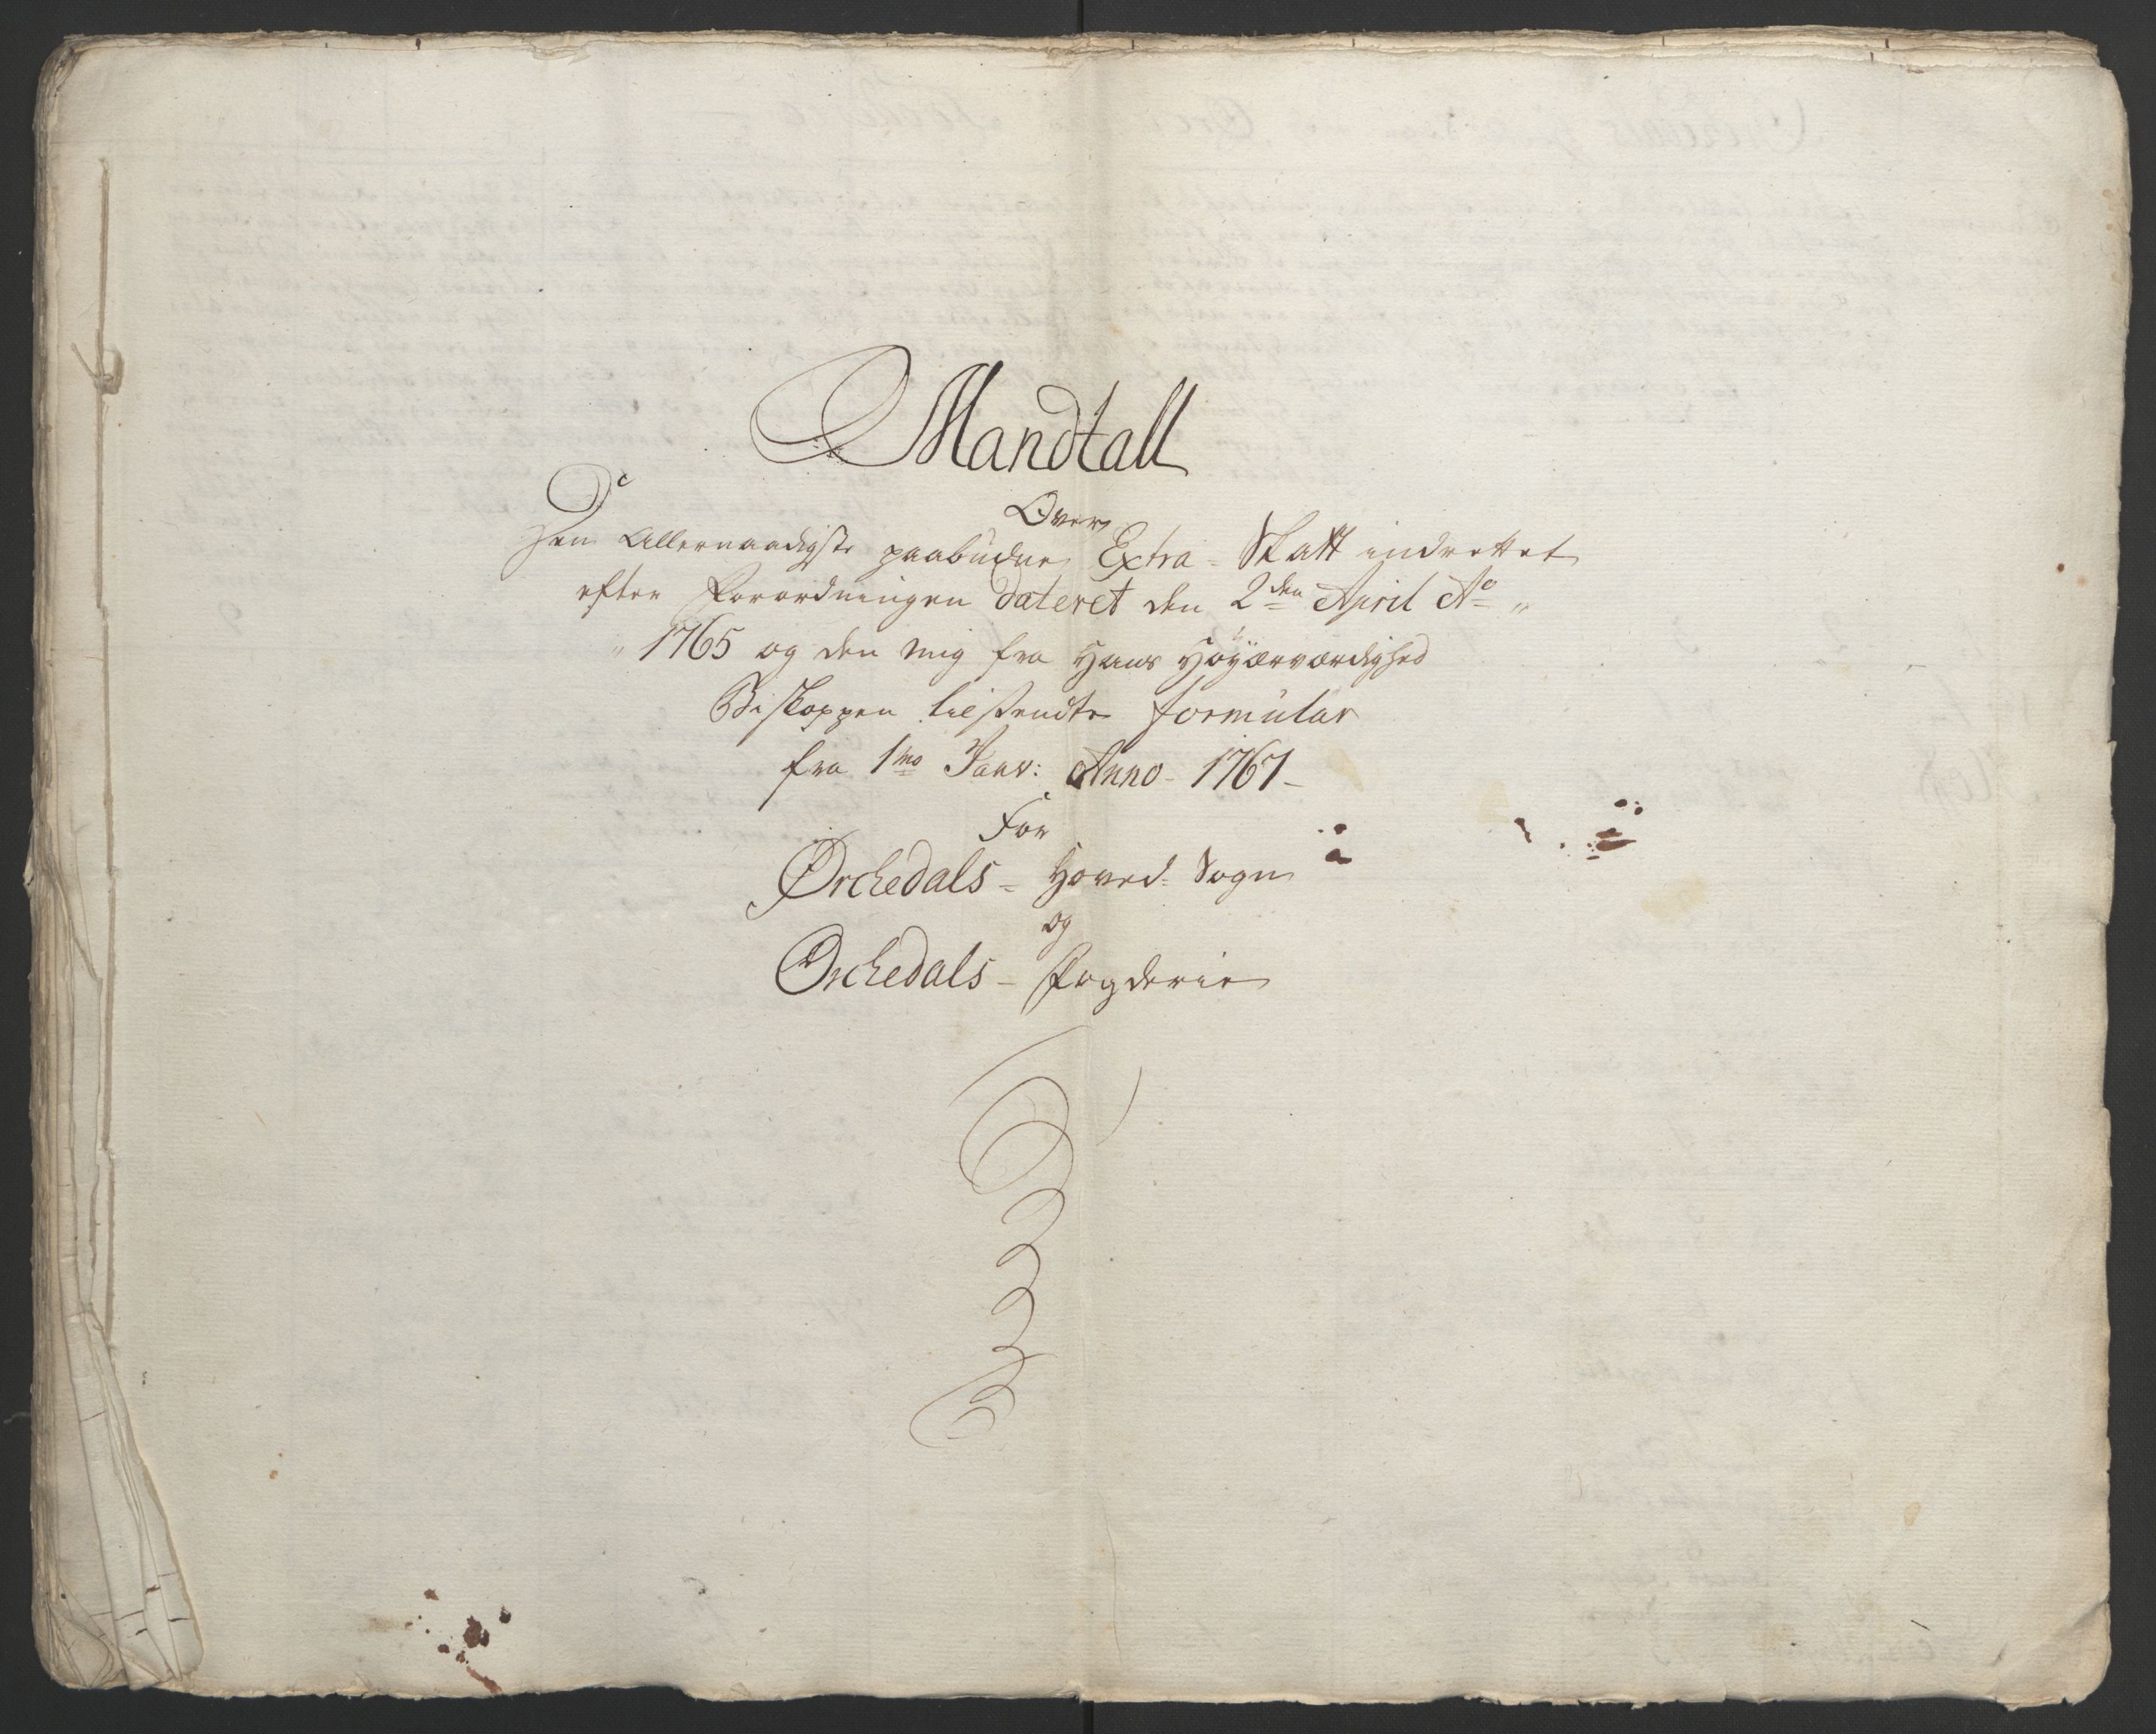 Mandtall
Over
Den Allernaadigste paabudne Extra-Skatt indrettet
efter Forordningen dateret den 2den April Ao
1765 og den mig fra Hans Høyærværdighed
Biskoppen tilsendte formular
fra 1mo Janv: Anno 1767
For
Orchedals Hoved-Sogn
og
Orchedals Fogderie